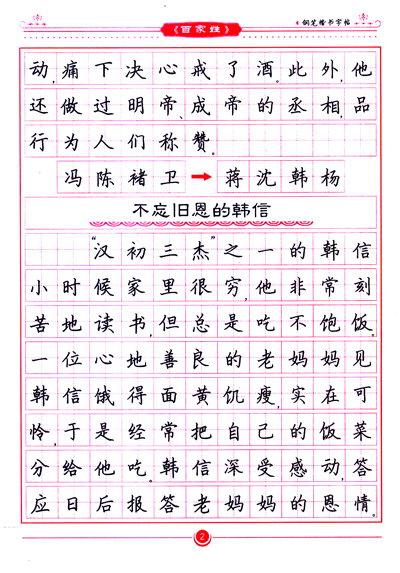 《百家姓》
钢笔楷书字帖
动,痛下决心戒了酒。此外,他
还做过明帝、成帝的丞相,品
行为人们称赞。
冯陈褚卫→蒋沈韩杨
不忘旧恩的韩信
“汉初三杰”之一的韩信
小时候家里很穷,他非常刻
苦地读书,但总是吃不饱饭。
一位心地善良的老妈妈见
韩信饿得面黄饥瘦,实在可
怜,于是经常把自己的饭菜
分给他吃。韩信深受感动,答
应日后报答老妈妈的恩情。
2